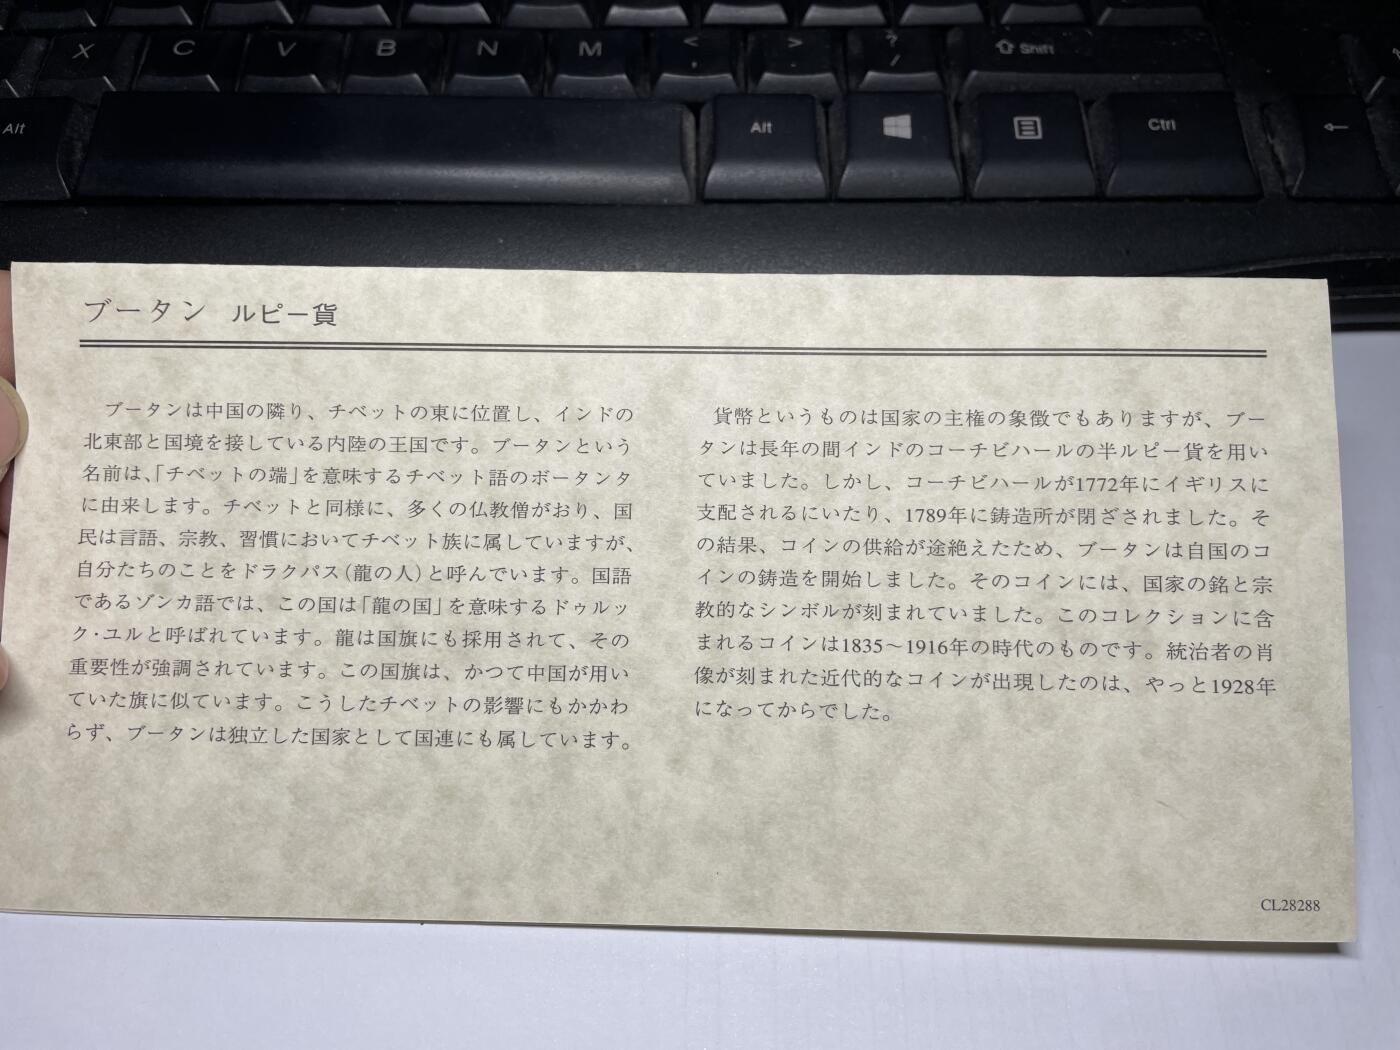 X C V B N M < , > . ? / Shift
Alt Alt Ctrl
ブータン ルピー貨
ブータンは中国の隣り、チベットの東に位置し、インドの
北東部と国境を接している内陸の王国です。ブータンという
名前は、「チベットの端」を意味するチベット語のボータンタ
に由来します。チベットと同様に、多くの仏教僧がおり、国
民は言語、宗教、習慣においてチベット族に属していますが、
自分たちのことをドラクパス(龍の人)と呼んでいます。国語
であるゾンカ語では、この国は「龍の国」を意味するドゥルッ
ク・ユルと呼ばれています。龍は国旗にも採用されて、その
重要性が強調されています。この国旗は、かつて中国が用い
ていた旗に似ています。こうしたチベットの影響にもかかわ
らず、ブータンは独立した国家として国連にも属しています。
貨幣というものは国家の主権の象徴でもありますが、ブー
タンは長年の間インドのコーチビハールの半ルピー貨を用い
ていました。しかし、コーチビハールが1772年にイギリスに
支配されるにいたり、1789年に鋳造所が閉ざされました。そ
の結果、コインの供給が途絶えたため、ブータンは自国のコ
インの鋳造を開始しました。そのコインには、国家の銘と宗
教的なシンボルが刻まれていました。このコレクションに含
まれるコインは1835〜1916年の時代のものです。統治者の肖
像が刻まれた近代的なコインが出現したのは、やっと1928年
になってからでした。
CL28288